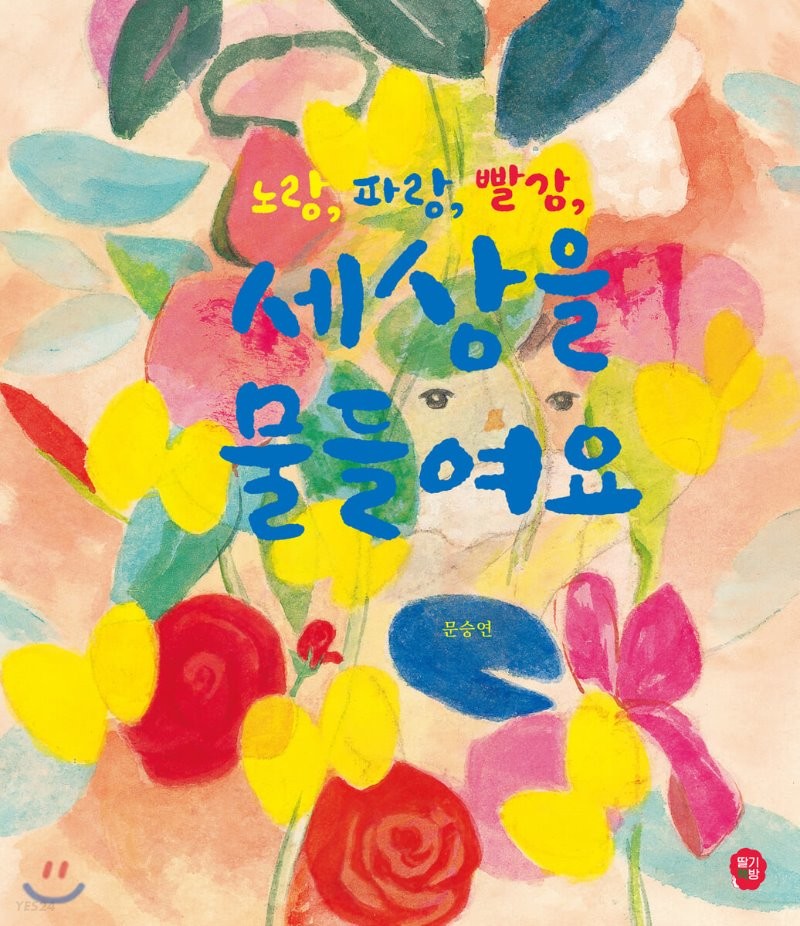 노랑, 파랑, 빨강,
세상을
물들여요
문승연
딸기
책방
YES24